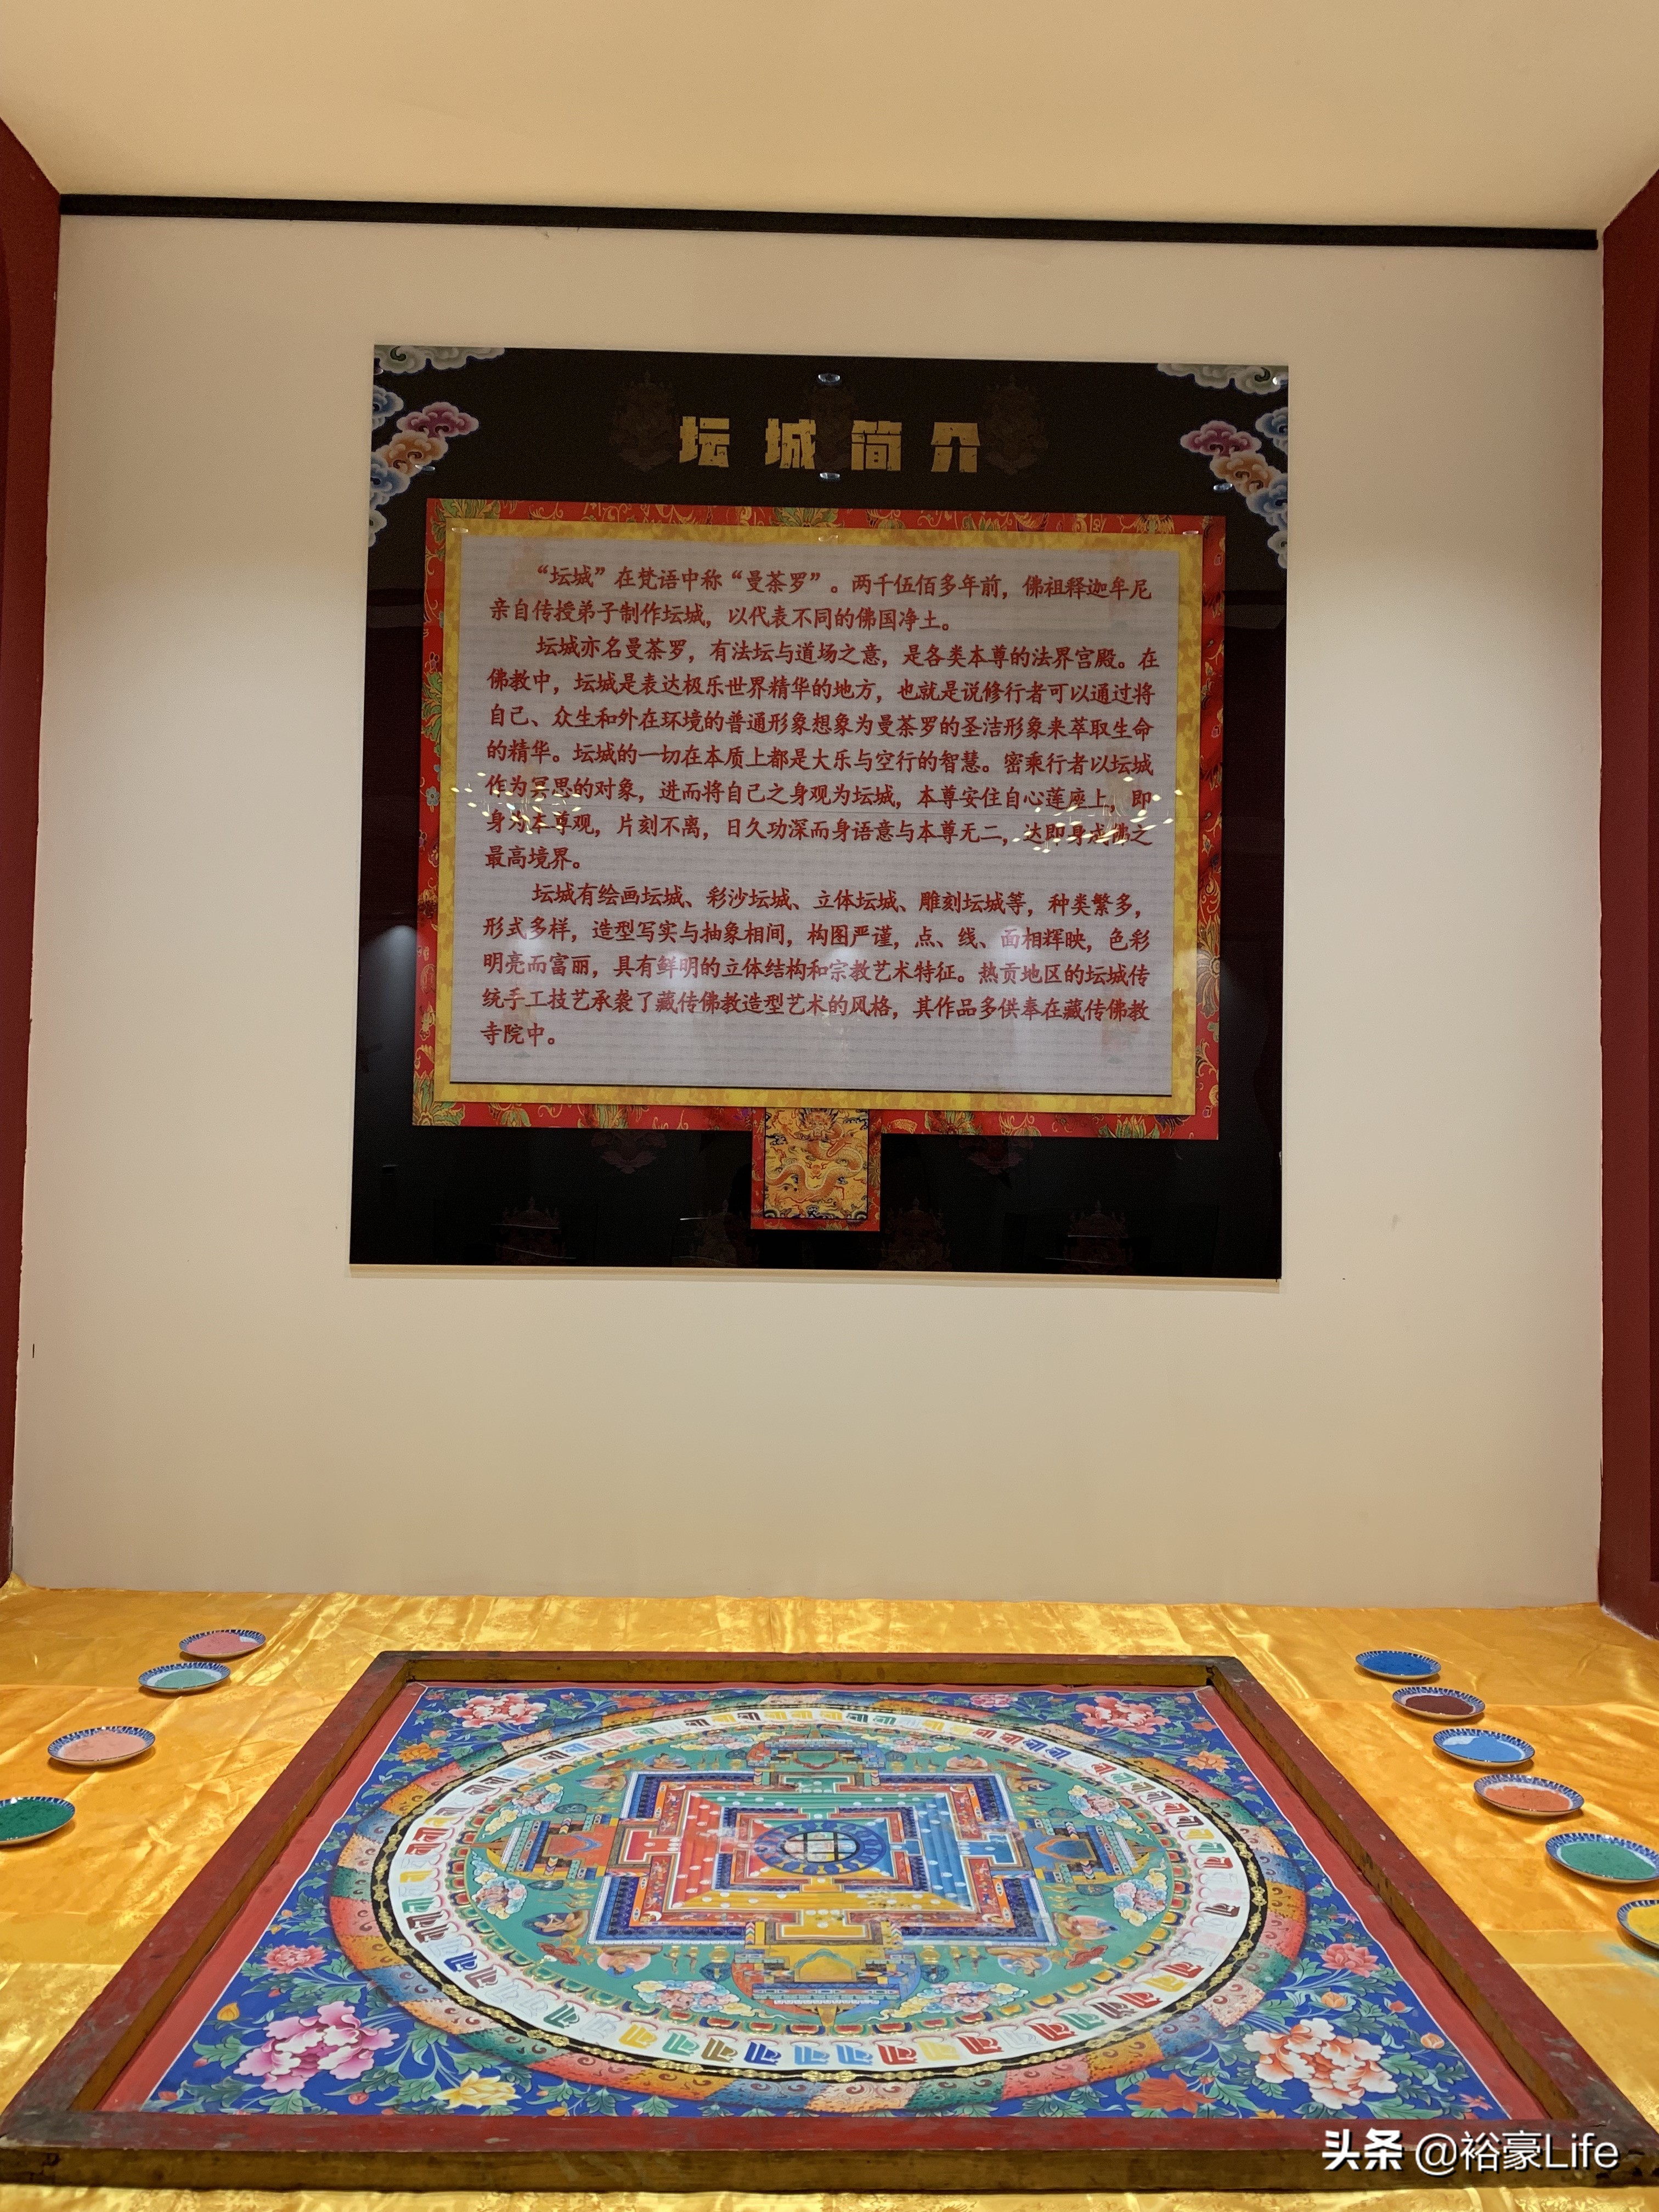 坛城简介
“坛城”在梵语中称“曼荼罗”。两千伍佰多年前，佛祖释迦牟尼
亲自传授弟子制作坛城，以代表不同的佛国净土。
坛城亦名曼荼罗，有法坛与道场之意，是各类本尊的法界宫殿。在
佛教中，坛城是表达极乐世界精华的地方，也就是说修行者可以通过将
自己、众生和外在环境的普通形象想象为曼荼罗的圣洁形象来萃取生命
的精华。坛城的一切在本质上都是大乐与空行的智慧。密乘行者以坛城
作为冥思的对象，进而将自己之身观为坛城，本尊安住自心莲座上，即
身为本尊观，片刻不离，日久功深而身语意与本尊无二，达即身成佛之
最高境界。
坛城有绘画坛城、彩沙坛城、立体坛城、雕刻坛城等，种类繁多，
形式多样，造型写实与抽象相间，构图严谨，点、线、面相辉映，色彩
明亮而富丽，具有鲜明的立体结构和宗教艺术特征。热贡地区的坛城传
统手工技艺承袭了藏传佛教造型艺术的风格，其作品多供奉在藏传佛教
寺院中。
头条 @裕豪Life